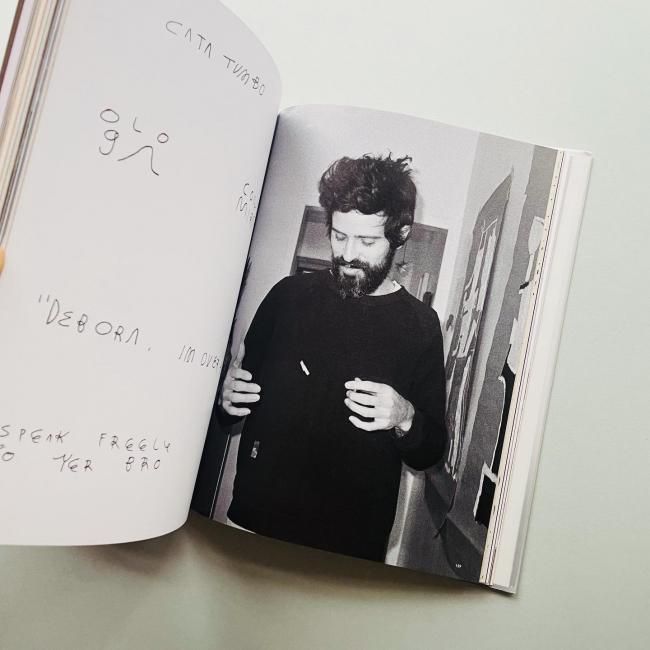 CATA TUMBO
OLO
"DEBORA, IM OVER
SPEAK FREELY
YER BRO